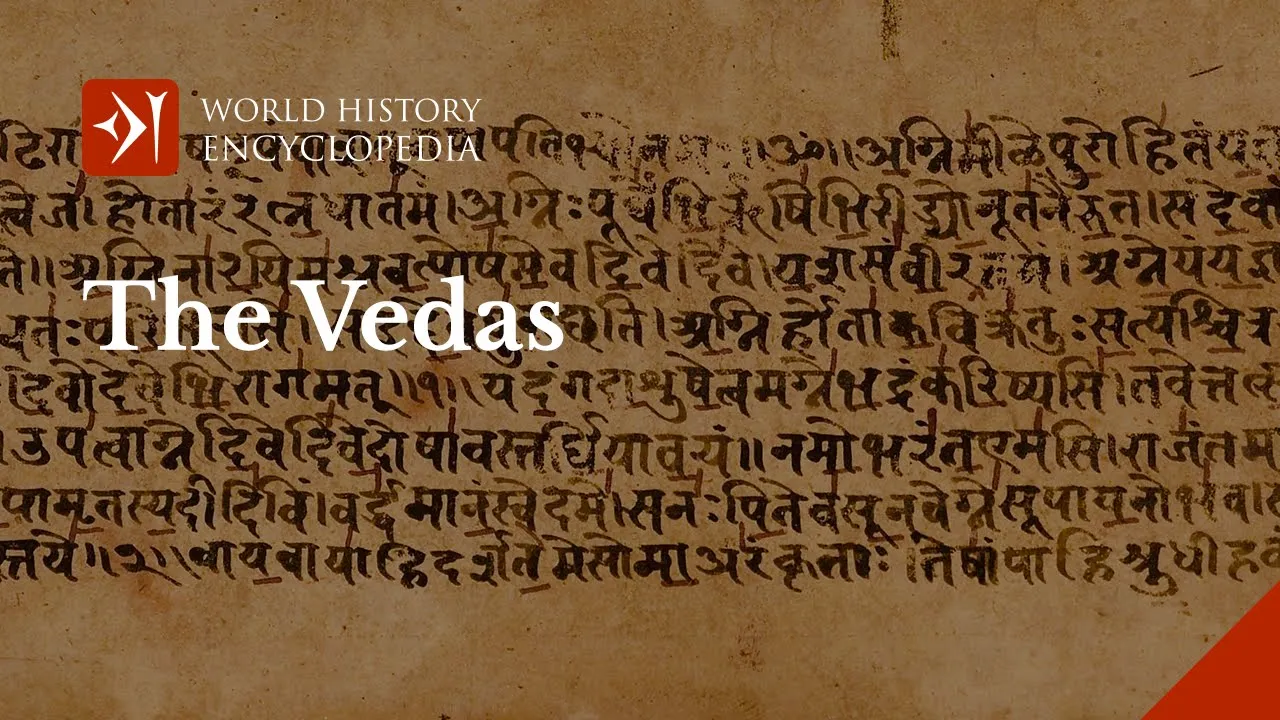 WORLD HISTORY
ENCYCLOPEDIA
The Vedas
॥ॐ॥अग्निमीळेपुरोहितंय
त्विजं।होतारंरत्नधातमं।अग्निःपूर्वेभिर्ऋषिभिरीड्योनूतनैरुत।सदेवाँ
ति॥अग्निनारयिमश्नवत्पोषमेवदिवेदिवे।यशसंवीरवत्तमं।अग्नेयंयज्ञ
ति।अग्निर्होताकविक्रतुःसत्यश्चित्र
देवोदेवेभिरागमत्॥१॥यदंगदाशुषेत्वमग्नेभद्रंकरिष्यसि।तवेत्त
।उपत्वाग्नेदिवेदिवेदोषावस्तर्धियावयं॥नमोभरंतएमसि।राजंतम
पामृतस्यदीदिविं।वर्द्धमानंस्वेदमे।सनःपितेवसूनवेग्नेसूपायनोभव।स
स्तये॥२॥वायवायाहिदर्शतेमेसोमाअरंकृताः।तेषांपाहिश्रुधीहव